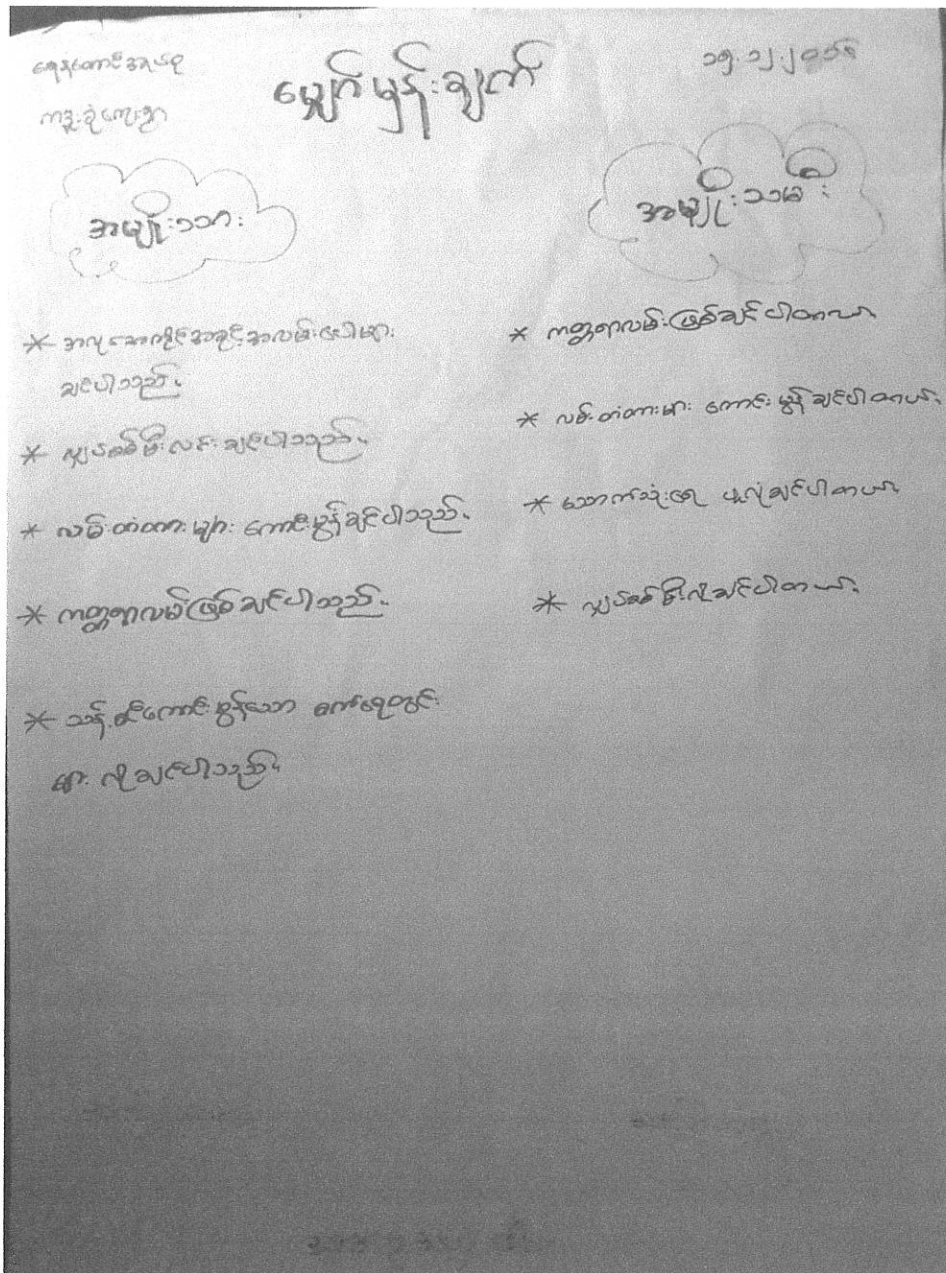 ရေနံတောင်အုပ်စု
မျှော်မှန်းချက်
၁၅.၁၂.၂၀၁၆
အမျိုးသား
အမျိုးသမီး
* အလုပ်အကိုင်အခွင့်အလမ်းပေါများ
ချင်ပါသည်။
* လျှပ်စစ်မီးလင်းချင်ပါသည်။
* လမ်းတံတားများ ကောင်းမွန်ချင်ပါသည်။
* ကတ္တရာလမ်းဖြစ်ချင်ပါသည်။
* သန့်ရှင်းကောင်းမွန်သော စက်ရေတွင်း
များ လိုချင်ပါသည်။
* ကတ္တရာလမ်းဖြစ်ချင်ပါတယ်။
* လမ်းတံတားများ ကောင်းမွန်ချင်ပါတယ်။
* သောက်သုံးရေ ဖူလုံချင်ပါတယ်။
* လျှပ်စစ်မီးလိုချင်ပါတယ်။